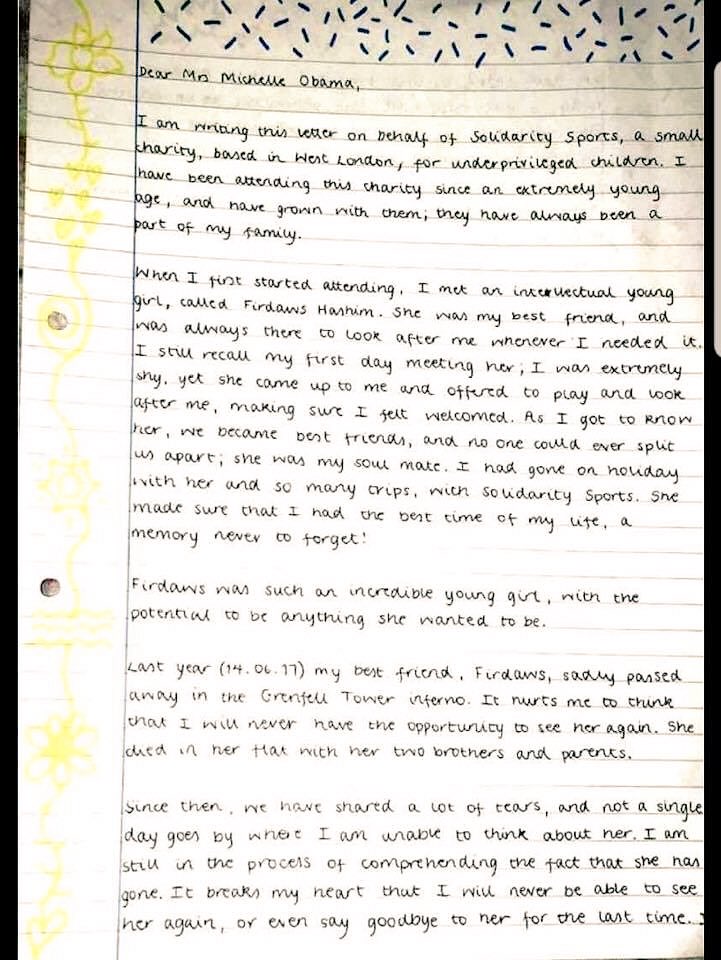 Dear Mrs Michelle Obama,
I am writing this letter on behalf of Solidarity Sports, a small
charity, based in West London, for underprivileged children. I
have been attending this charity since an extremely young
age, and have grown with them; they have always been a
part of my family.
When I first started attending, I met an intellectual young
girl, called Firdaws Hashim. She was my best friend, and
was always there to look after me whenever I needed it.
I still recall my first day meeting her; I was extremely
shy, yet she came up to me and offered to play and look
after me, making sure I felt welcomed. As I got to know
her, we became best friends, and no one could ever split
us apart; she was my soul mate. I had gone on holiday
with her and so many trips, with Solidarity Sports. She
made sure that I had the best time of my life, a
memory never to forget!
Firdaws was such an incredible young girl, with the
potential to be anything she wanted to be.
Last year (14.06.17) my best friend, Firdaws, sadly passed
away in the Grenfell Tower inferno. It hurts me to think
that I will never have the opportunity to see her again. She
died in her flat with her two brothers and parents.
Since then, we have shared a lot of tears, and not a single
day goes by where I am unable to think about her. I am
still in the process of comprehending the fact that she has
gone. It breaks my heart that I will never be able to see
her again, or even say goodbye to her for the last time. I